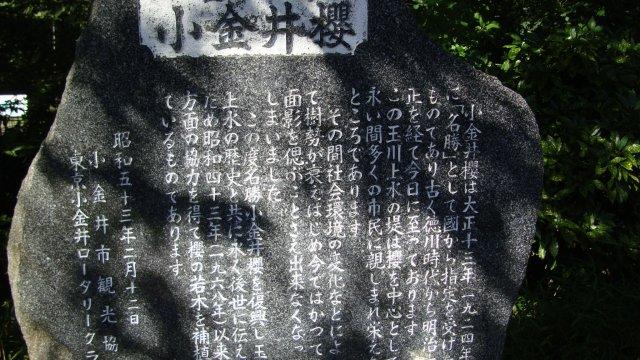 小金井櫻
小金井櫻は大正十三年一九二四年
に「名勝」として國から指定を受け
ものであり古く徳川時代から明治
正を経て今日に至っております
この玉川上水の堤は櫻を中心とし
永い間多くの市民に親しまれ来た
ところであります
その間社会環境の変化などによ
て樹勢が衰えはじめ今ではかつて
面影を偲ぶことさえ出来なくなっ
しまいました
この度名勝小金井櫻を復興し玉
上水の歴史と共に永く後世に伝え
ため昭和四十三年(一九六八年)以来
方面の協力を得て櫻の若木を補植
ているものであります
昭和五十三年二月十二日
小金井市観光協
東京小金井ロータリークラ